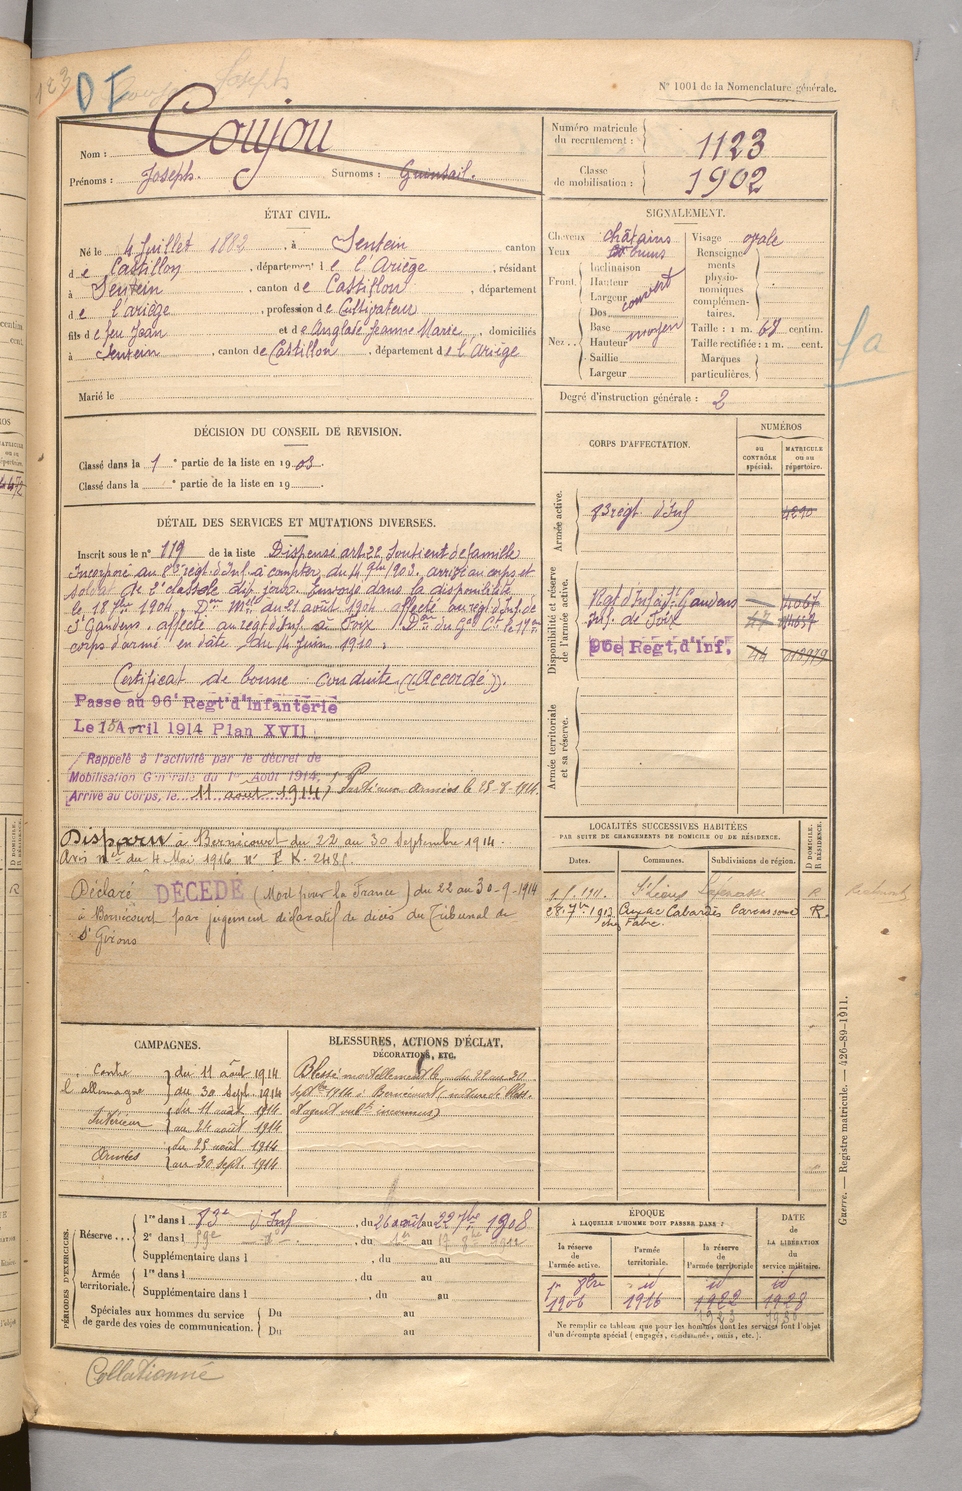 N° 1001 de la Nomenclature générale.
DF
Joseph
Nom : Coujou
Prénoms : Joseph. Surnoms : Guintail.
Numéro matricule du recrutement : 1123
Classe de mobilisation : 1902
ÉTAT CIVIL.
Né le 4 Juillet 1882, à Sentein canton
de Castillon, département de l'Ariège, résidant
à Sentein, canton de Castillon, département
de l'ariège, profession de Cultivateur
fils de feu Jean et de Anglade Jeanne Marie, domiciliés
à Sentein, canton de Castillon, département de l'Ariège
Marié le
SIGNALEMENT.
Cheveux châtains
Yeux bruns
Front Inclinaison
Hauteur
Largeur
couvert
Nez Dos
Base
Hauteur
moyen
Saillie
Largeur
Visage ovale
Renseignements physionomiques complémentaires.
Taille : 1 m. 67 centim.
Taille rectifiée : 1 m. cent.
Marques particulières.
Degré d'instruction générale : 2
DÉCISION DU CONSEIL DE REVISION.
Classé dans la 1 e partie de la liste en 1903.
Classé dans la e partie de la liste en 19
CORPS D'AFFECTATION.
NUMÉROS
au CONTRÔLE spécial.
MATRICULE ou au répertoire.
Armée active.
83 régt d'Inf 4290
Disponibilité et réserve de l'armée active.
Rgt d'Inf à St Gaudens
Inf. de Foix
96e Régt.d'Inf.
Armée territoriale et sa réserve.
DÉTAIL DES SERVICES ET MUTATIONS DIVERSES.
Inscrit sous le n° 119 de la liste Dispensé art. 22 Soutient de famille
Incorporé au 83e régt d'Inf. à compter du 14 9bre 1903. arrivé au corps et
soldat de 2e classe le dit jour. Envoyé dans la disponibilité
le 18 7bre 1904. Don Mlle du 21 août 1904 affecté au régt d'Inf. de
St Gaudens. affecté au régt d'Inf de Foix Don du Gal Ct le 17e
corps d'armé en date du 14 Juin 1910.
Certificat de bonne conduite ((Accordé)).
Passé au 96e Regt d'Infanterie
Le 15 Avril 1914 Plan XVII
Rappelé à l'activité par le décret de
Mobilisation Générale du 1er Août 1914,
Arrivé au Corps, le 11 août 1914) Parti aux armées le 25-8-1914.
Disparu à Bernécourt du 22 au 30 Septembre 1914.
Avis du 4 Mai 1916 n° F K. 2485.
Déclaré DÉCÉDÉ (Mort pour la France) du 22 au 30-9-1914
à Bernécourt par jugement déclaratif de décès du Tribunal de
St Girons
LOCALITÉS SUCCESSIVES HABITÉES
PAR SUITE DE CHANGEMENTS DE DOMICILE OU DE RÉSIDENCE.
Dates. Communes. Subdivisions de région. D DOMICILE. R RÉSIDENCE.
28 7bre 1913 Cuxac Cabardès Carcassonne R.
chez Fabre.
CAMPAGNES.
Contre l'allemagne du 11 août 1914
du 30 Sept. 1914
Intérieur du 11 août 1914
au 24 août 1914
Armées du 25 août 1914
au 30 sept. 1914
BLESSURES, ACTIONS D'ÉCLAT,
DÉCORATIONS, ETC.
Blessé mortellement le du 22 au 30
septbre 1914 à Bernecourt (nature de bless.
et agent vult inconnus)
PÉRIODES D'EXERCICES.
Réserve 1re dans l 83e d'Inf, du 26 août au 22 7bre 1908
2e dans l 59e d°, du 1er au 17 8bre 1912
Supplémentaire dans l , du au
Armée territoriale. 1re dans l , du au
Supplémentaire dans l , du au
Spéciales aux hommes du service de garde des voies de communication. Du au
Du au
ÉPOQUE
À LAQUELLE L'HOMME DOIT PASSER DANS :
la réserve de l'armée active. l'armée territoriale. la réserve de l'armée territoriale
DATE de LA LIBÉRATION du service militaire.
1er 8bre id id id
1906 1916 1922 1928
Ne remplir ce tableau que pour les hommes dont les services font l'objet
d'un décompte spécial (engagés, condamnés, omis, etc.).
Collationné
Guerre. — Registre matricule. — 426-89-1911.